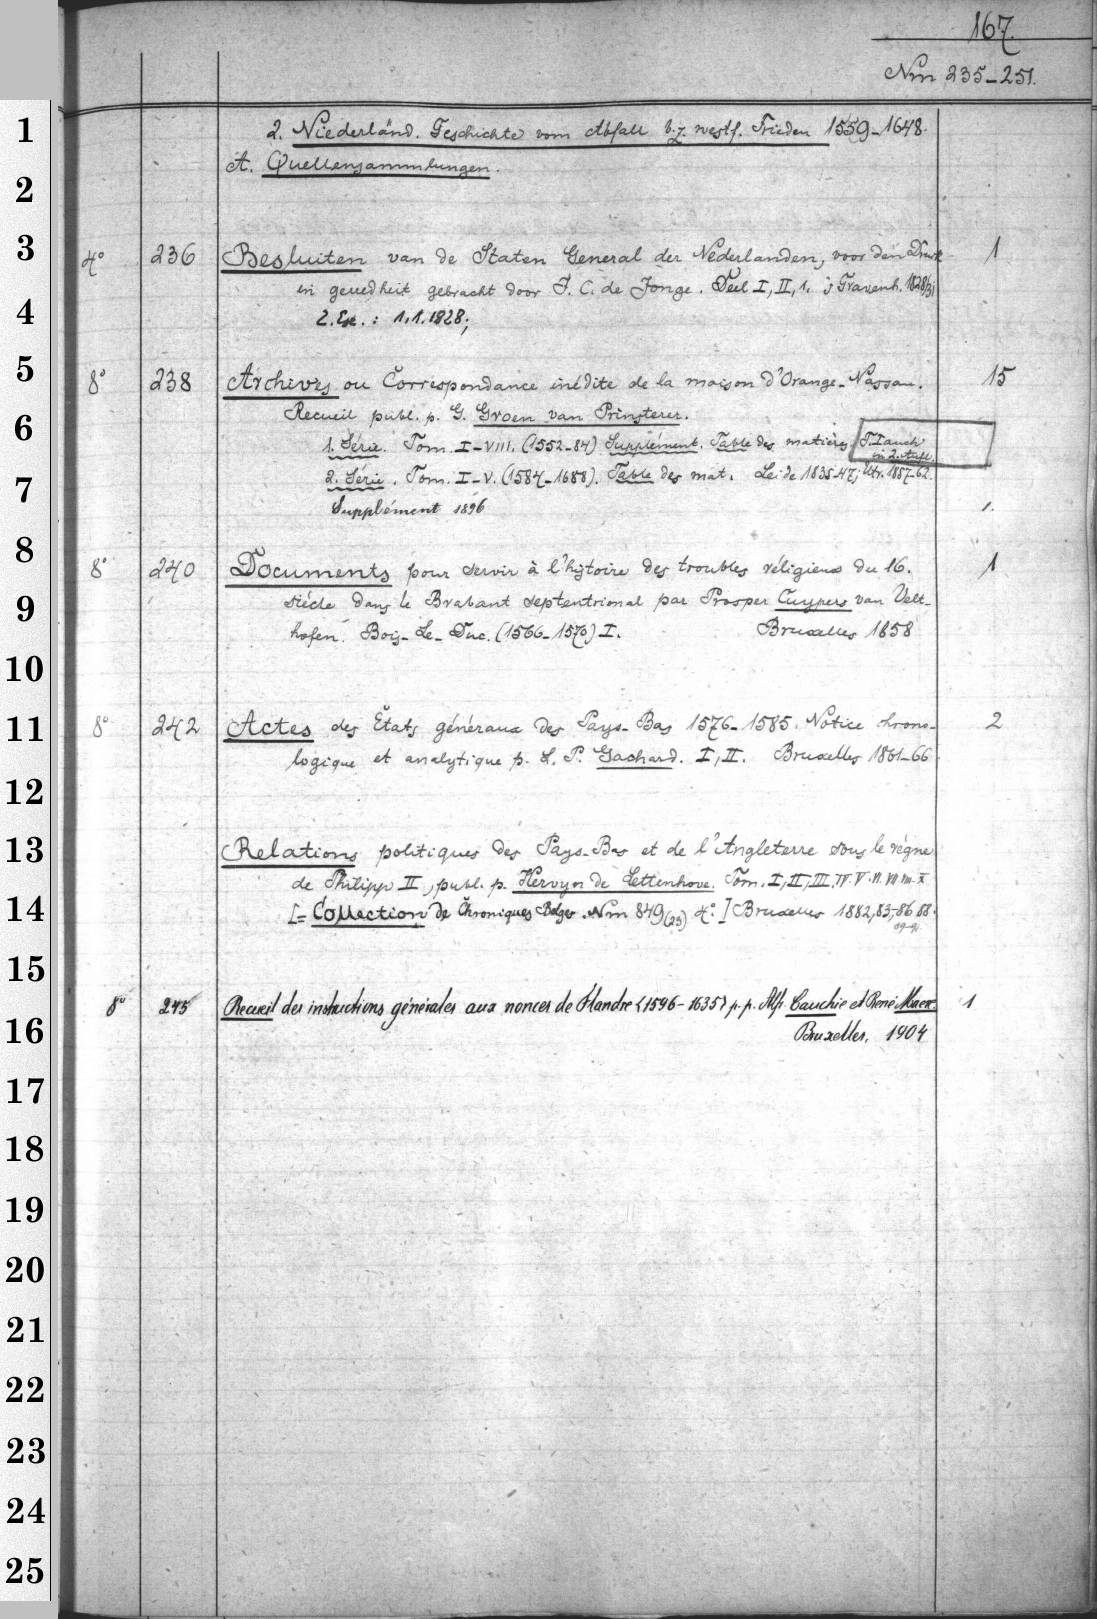 167.
Nrn 235-251.
1
2. Niederländ. Geschichte vom Abfall b. z. westf. Frieden 1559-1648.
A. Quellensammlungen.
2
3
4° 236 Besluiten van de Staten General der Nederlanden, voor den Druk 1
in gereedheit gebracht door J. C. de Jonge. Deel I, II, 1. 's Gravenh. 1828/31
4
2. Ex.: 1.1.1828;
5
8° 238 Archives ou Correspondance inédite de la maison d'Orange-Nassau. 15
Recueil publ. p. G. Groen van Prinsterer.
6
1. Série. Tom. I-VIII. (1552-84) Supplément. Table des matières T. I auch
in 2. Aufl.
2. Série. Tom. I-V. (1584-1688). Table des mat. Leide 1835-47; Utr. 1857-62.
7
Supplément 1896 1.
8
8° 240 Documents pour servir à l'histoire des troubles réligieux du 16. 1
siécle dans le Brabant septentrional par Prosper Cuypers van Velt-
9
hofen. Bois-Le-Duc. (1566-1570) I. Bruxelles 1858
10
11
8° 242 Actes des États généraux des Pays-Bas 1576-1585. Notice chrono- 2
logique et analytique p. L. P. Gachard. I, II. Bruxelles 1861-66
12
13
Relations politiques des Pays-Bas et de l'Angleterre sous le règne
de Philipp II, publ. p. Kervyn de Lettenhove. Tom. I, II, III, IV. V. VI. VII. VIII. X
14
[= Collection de Chroniques Belges. Nrn 849 (23) 4°.] Bruxelles 1882, 83,-86 88.
89-91.
15
8° 245 Recueil des instructions générales aux nonces de Flandre <1596-1635> p. p. Alf. Cauchie et René Maere 1
16
Bruxelles, 1904
17
18
19
20
21
22
23
24
25